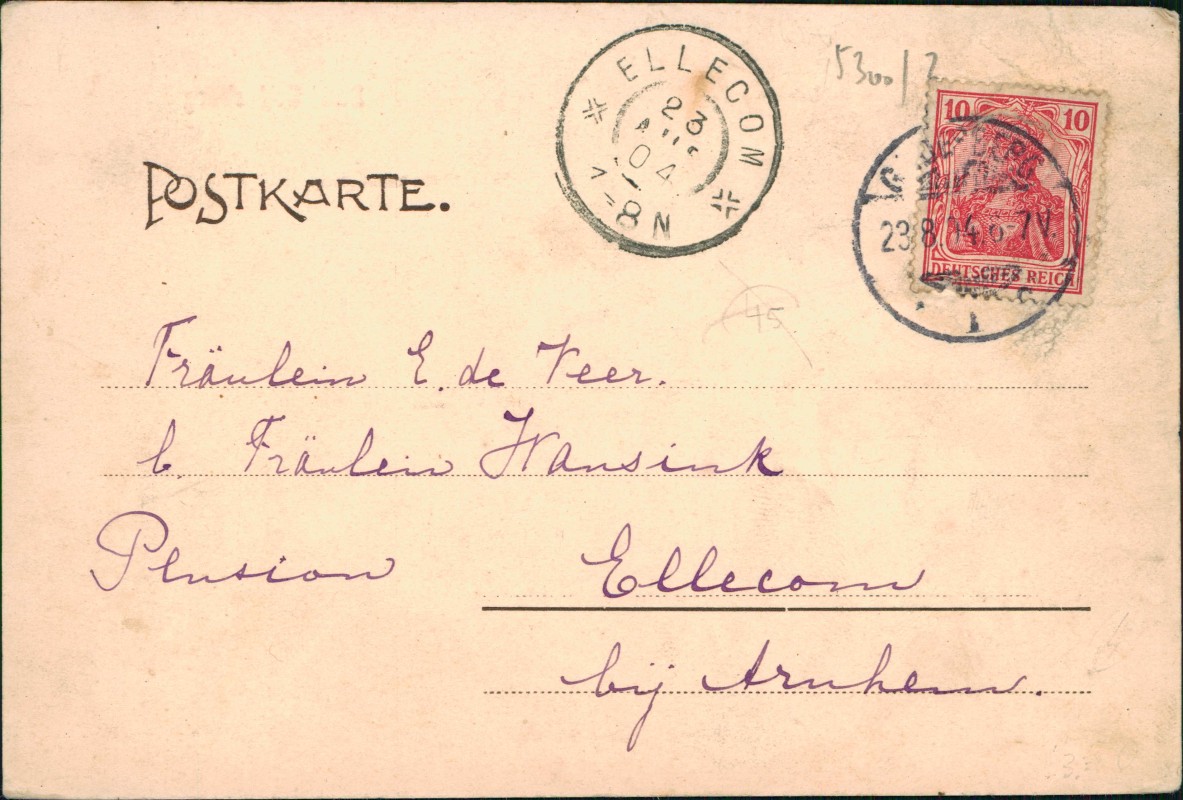 ELLECOM
23
04
7-8N
5300/2
10 10
23.8.04. 6-7V.
DEUTSCHES REICH
POSTKARTE.
45
Fräulein E. de Veer.
b. Fräulein Wansink
Pension Ellecom
bij Arnhem.